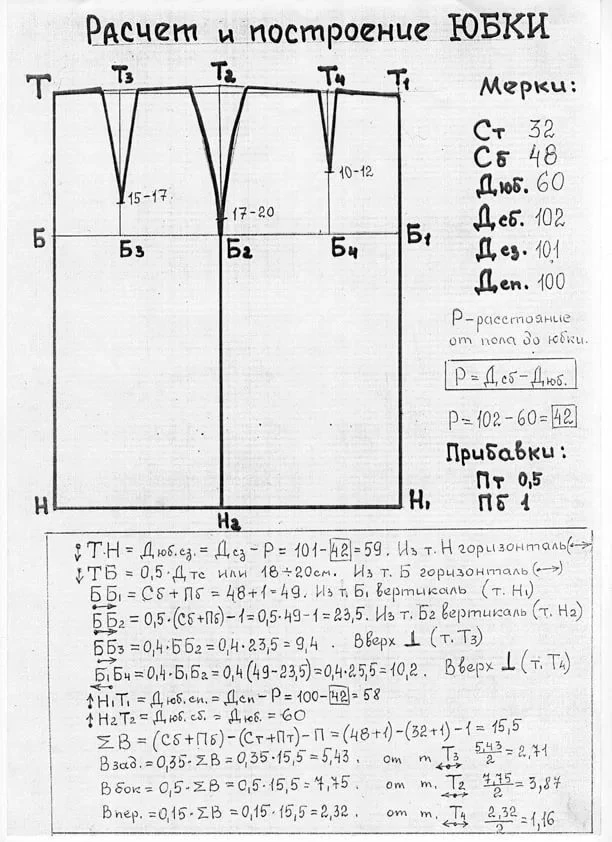 Расчет и построение ЮБКИ
Т
Т3
Т2
Т4
Т1
15-17
17-20
10-12
Б
Б3
Б2
Б4
Б1
Н
Н2
Н1
Мерки:
Ст 32
Сб 48
Дюб. 60
Дсб. 102
Дсз. 101
Дсп. 100
Р-расстояние
от пола до юбки.
Р = Дсб - Дюб.
Р = 102 - 60 = 42
Прибавки:
Пт 0,5
Пб 1
↓ТН = Дюб.сз. = Дсз - Р = 101 - 42 = 59. Из т. Н горизонталь (↔)
↓ТБ = 0,5·Дтс или 18÷20см. Из т. Б горизонталь (↔)
ББ1 = Сб + Пб = 48+1 = 49. Из т. Б1 вертикаль (т. Н1)
ББ2 = 0,5·(Сб+Пб) - 1 = 0,5·49 - 1 = 23,5. Из т. Б2 вертикаль (т. Н2)
ББ3 = 0,4·ББ2 = 0,4·23,5 = 9,4. Вверх ⊥ (т. Т3)
Б1Б4 = 0,4·Б1Б2 = 0,4(49-23,5) = 0,4·25,5 = 10,2. Вверх ⊥ (т. Т4)
↑Н1Т1 = Дюб.сп. = Дсп - Р = 100 - 42 = 58
↑Н2Т2 = Дюб.сб. = Дюб. = 60
ΣВ = (Сб+Пб) - (Ст+Пт) - П = (48+1) - (32+1) - 1 = 15,5
Взад. = 0,35·ΣВ = 0,35·15,5 = 5,43. от т. Т3 5,43/2 = 2,71
Вбок = 0,5·ΣВ = 0,5·15,5 = 7,75. от т. Т2 7,75/2 = 3,87
Впер. = 0,15·ΣВ = 0,15·15,5 = 2,32. от т. Т4 2,32/2 = 1,16